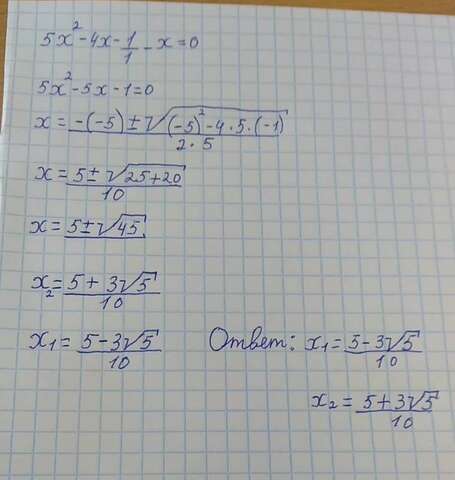 5x² - 4x - 1/1 - x = 0
5x² - 5x - 1 = 0
x = (-(-5) ± √((-5)² - 4 · 5 · (-1)))/(2 · 5)
x = (5 ± √(25 + 20))/10
x = 5 ± √45
x₂ = (5 + 3√5)/10
x₁ = (5 - 3√5)/10 Ответ: x₁ = (5 - 3√5)/10
x₂ = (5 + 3√5)/10